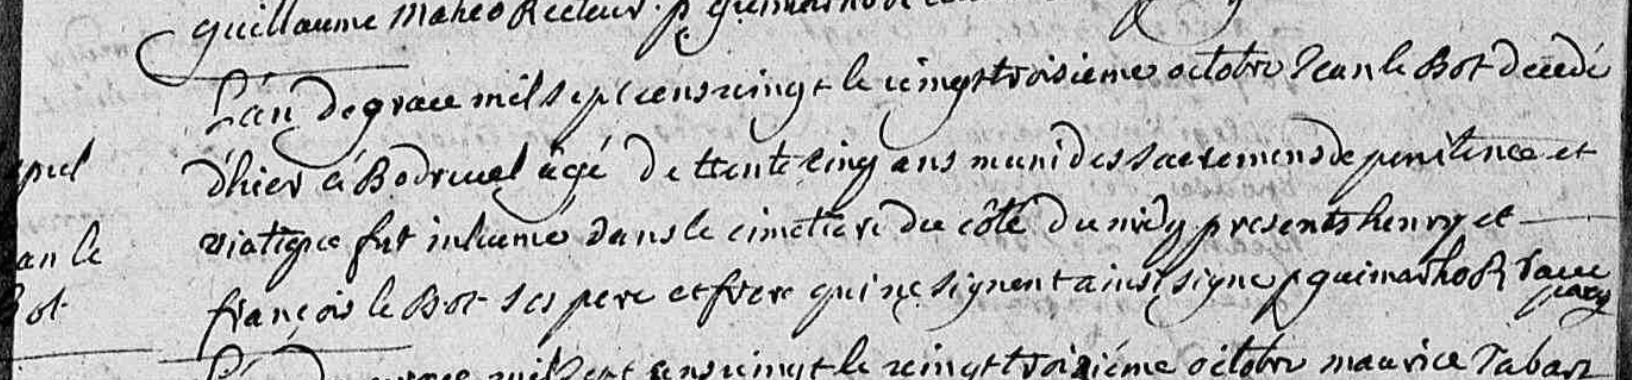 guillaume maheo Recteur. p guimarho
L'án de grace mil sept cens vingt le vingt troisieme octobre Jean le Bot decedé
d'hier á Bodrevel agé de ttente cinq ans muni des sacremens de penitence et
viatique fut inhumé dans le cimetiere du côté du midy presents henry et
françois le Bot ses pere et frere qui ne signent ainsi signe p guimarho R
an le
Bot
mil sept cens vingt le vingt troisiéme octobre maurice Tabart